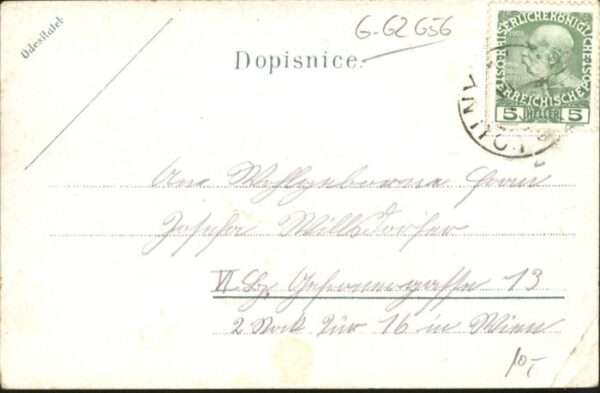 Odesílatel:
G-62656
Dopisnice.
KAISERLICHE KÖNIGLICHE
ÖSTERREICHISCHE
5 HELLER 5
An Wohlgeborene Frau
Josefa Willsdorfer
VI Bz 13
2 Stock Tür 16 in Wien
10,-